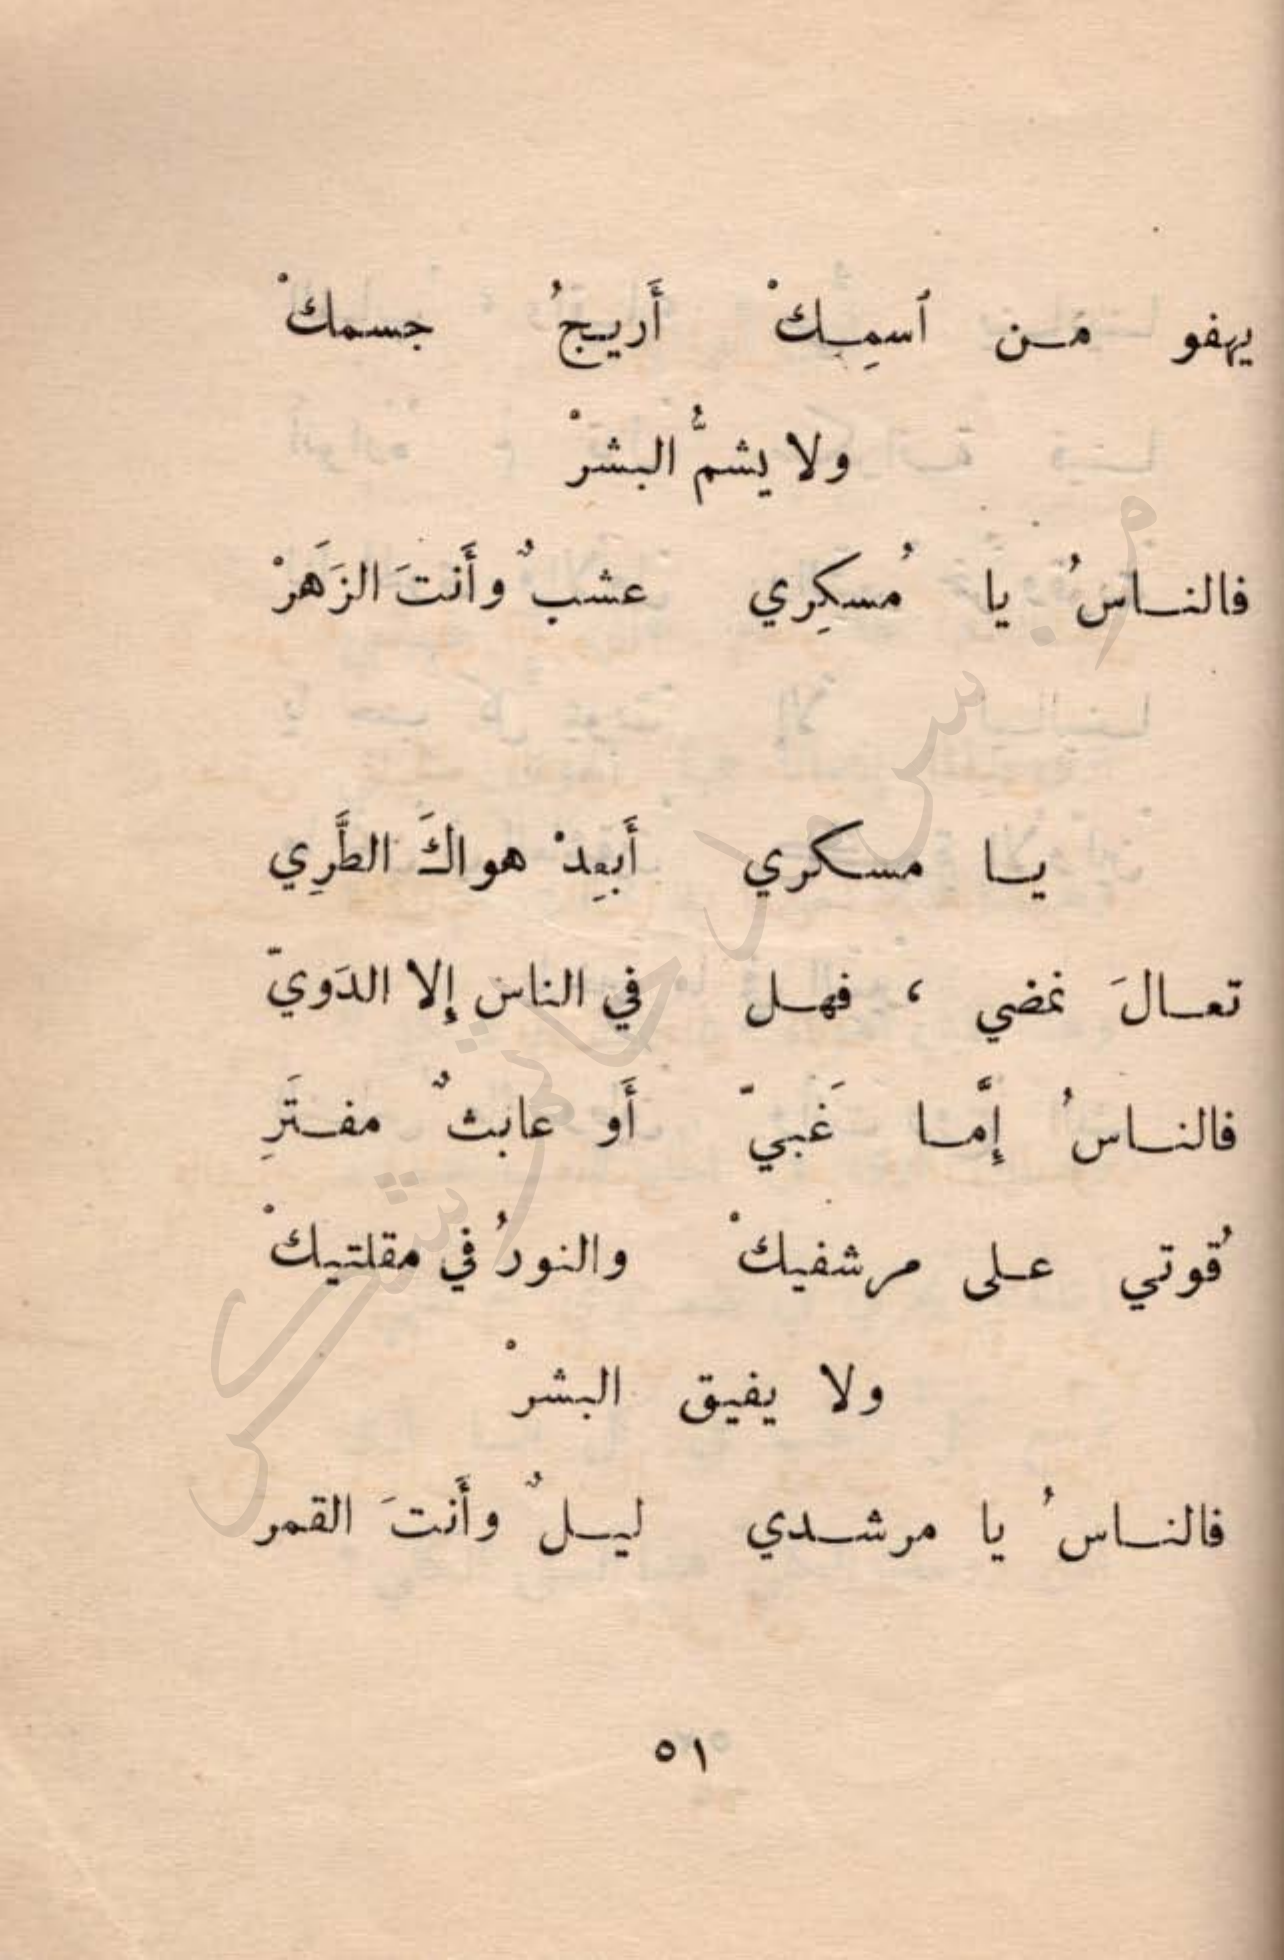 يهفو من ٱسمِكْ أَريجُ جسمكْ
ولا يشمُّ البشرْ
فالناسُ يا مُسكِري عشبٌ وأَنتَ الزَهَرْ
يا مسكري أَبعِدْ هواكَ الطَّرِي
تعالَ نمضي ، فهل في الناس إِلا الدَويّ
فالناسُ إِمَّا غَبيّ أَو عابثٌ مفتَرِ
قُوتي على مرشفيكْ والنورُ في مقلتيكْ
ولا يفيق البشرْ
فالناسُ يا مرشدي ليلٌ وأَنتَ القمر
٥١